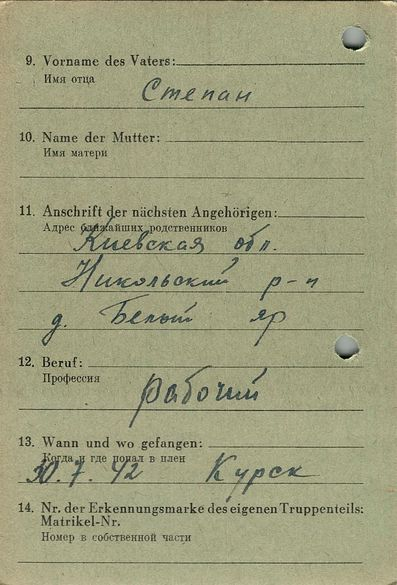 9. Vorname des Vaters:
Имя отца
Степан
10. Name der Mutter:
Имя матери
11. Anschrift der nächsten Angehörigen:
Адрес ближайших родственников
Киевская обл.
Никольский р-н
д. Белый яр
12. Beruf:
Профессия
рабочий
13. Wann und wo gefangen:
Когда и где попал в плен
30. 7. 42 Курск
14. Nr. der Erkennungsmarke des eigenen Truppenteils:
Matrikel-Nr.
Номер в собственной части